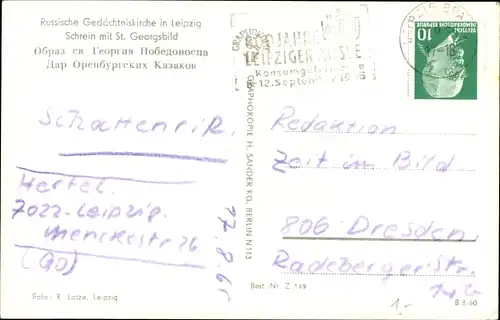 Russische Gedächtniskirche in Leipzig
Schrein mit St. Georgsbild
Образ св Георгия Победоносца
Дар Оренбургских Казаков
Schattenriß.
Hertel
7022-Leipzig
Menckestr 26
27.8.65
Foto: R. Lotze, Leipzig
GRAPHOKOPIE H. SANDER KG. BERLIN N 113
JAHRE
LEIPZIGER MESSE
12. September
10
Redaktion
Zeit im Bild
806 Dresden
Radeberger Str.
Best.-Nr. Z 149
1.-
B 3/60